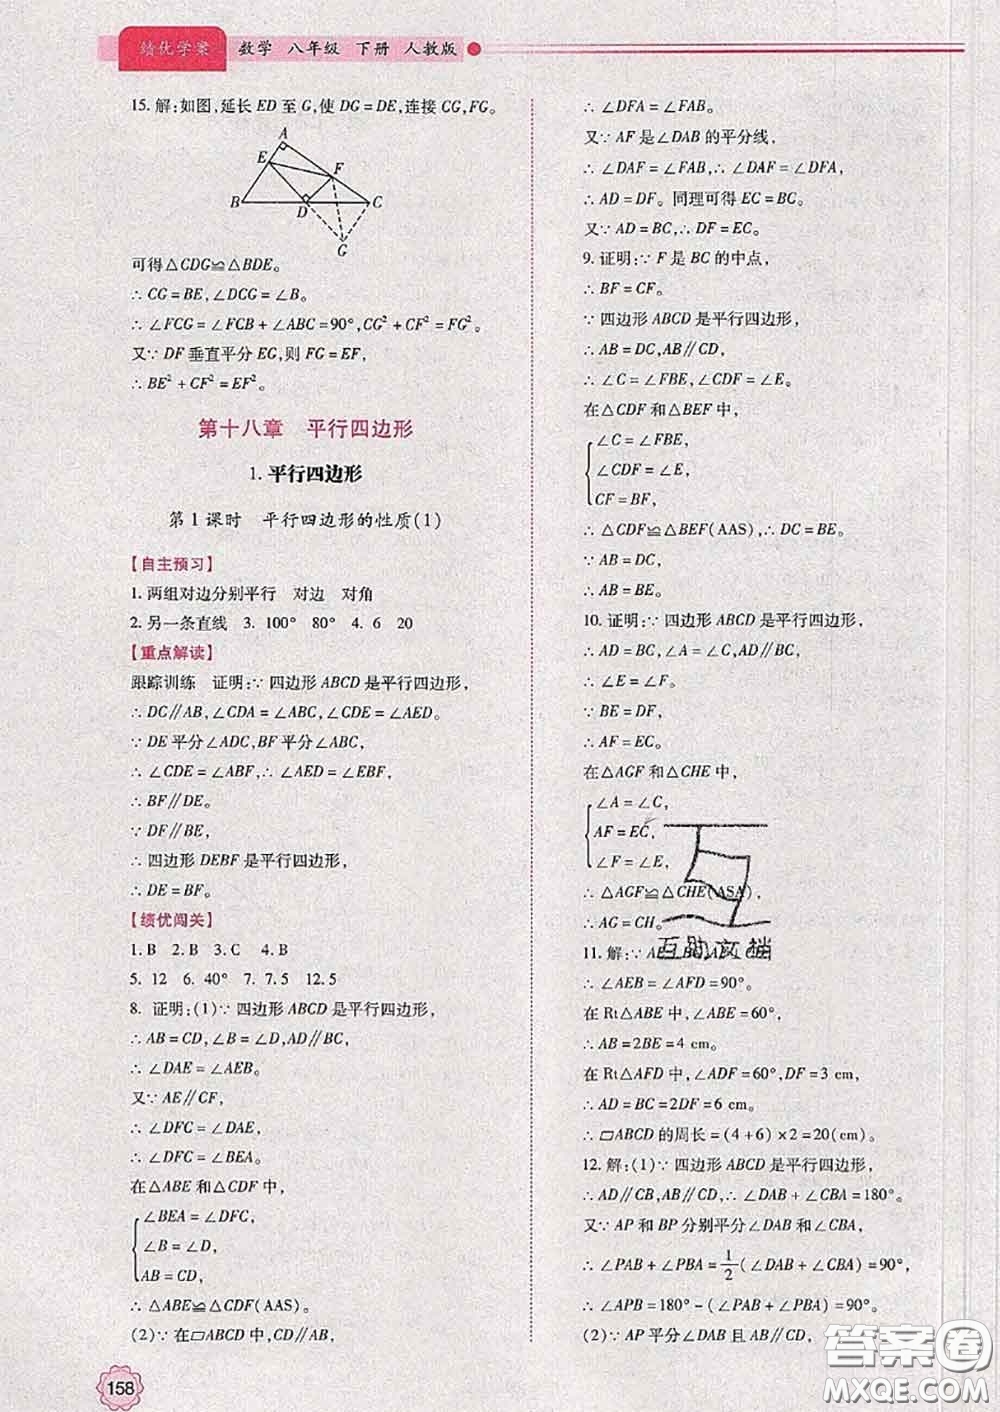 绩优学案 数学 八年级 下册 人教版
15.解:如图,延长 ED 至 G,使 DG=DE,连接 CG,FG。
A
E
F
B
D
C
G
可得△CDG≌△BDE。
∴ CG=BE,∠DCG=∠B。
∴ ∠FCG=∠FCB+∠ABC=90°,CG²+CF²=FG²。
又∵ DF 垂直平分 EG,则 FG=EF,
∴ BE²+CF²=EF²。
第十八章 平行四边形
1.平行四边形
第1课时 平行四边形的性质(1)
【自主预习】
1.两组对边分别平行 对边 对角
2.另一条直线 3. 100° 80° 4. 6 20
【重点解读】
跟踪训练 证明:∵ 四边形 ABCD 是平行四边形,
∴ DC∥AB,∠CDA=∠ABC,∠CDE=∠AED。
∵ DE 平分∠ADC,BF 平分∠ABC,
∴ ∠CDE=∠ABF,∴ ∠AED=∠EBF,
∴ BF∥DE。
∵ DF∥BE,
∴ 四边形 DEBF 是平行四边形,
∴ DE=BF。
【绩优闯关】
1. B 2. B 3. C 4. B
5. 12 6. 40° 7. 7.5 12.5
8. 证明:(1)∵ 四边形 ABCD 是平行四边形,
∴ AB=CD,∠B=∠D,AD∥BC,
∴ ∠DAE=∠AEB。
又∵ AE∥CF,
∴ ∠DFC=∠DAE,
∴ ∠DFC=∠BEA。
在△ABE 和△CDF 中,
∠BEA=∠DFC,
∠B=∠D,
AB=CD,
∴ △ABE≌△CDF(AAS)。
(2)∵ 在▱ABCD 中,CD∥AB,
158
∴ ∠DFA=∠FAB。
又∵ AF 是∠DAB 的平分线,
∴ ∠DAF=∠FAB,∴ ∠DAF=∠DFA,
∴ AD=DF。同理可得 EC=BC。
又∵ AD=BC,∴ DF=EC。
9. 证明:∵ F 是 BC 的中点,
∴ BF=CF。
∵ 四边形 ABCD 是平行四边形,
∴ AB=DC,AB∥CD,
∴ ∠C=∠FBE,∠CDF=∠E。
在△CDF 和△BEF 中,
∠C=∠FBE,
∠CDF=∠E,
CF=BF,
∴ △CDF≌△BEF(AAS),∴ DC=BE。
∵ AB=DC,
∴ AB=BE。
10. 证明:∵ 四边形 ABCD 是平行四边形,
∴ AD=BC,∠A=∠C,AD∥BC,
∴ ∠E=∠F。
∵ BE=DF,
∴ AF=EC。
在△AGF 和△CHE 中,
∠A=∠C,
AF=EC,
∠F=∠E,
∴ △AGF≌△CHE(ASA),
∴ AG=CH。
11. 解:∵
互助文档
∴ ∠AEB=∠AFD=90°。
在 Rt△ABE 中,∠ABE=60°,
∴ AB=2BE=4 cm。
在 Rt△AFD 中,∠ADF=60°,DF=3 cm,
∴ AD=BC=2DF=6 cm。
∴ ▱ABCD 的周长=(4+6)×2=20(cm)。
12. 解:(1)∵ 四边形 ABCD 是平行四边形,
∴ AD∥CB,AB∥CD,∴ ∠DAB+∠CBA=180°。
又∵ AP 和 BP 分别平分∠DAB 和∠CBA,
∴ ∠PAB+∠PBA=1/2(∠DAB+∠CBA)=90°,
∴ ∠APB=180°-(∠PAB+∠PBA)=90°。
(2)∵ AP 平分∠DAB 且 AB∥CD,
答案圈
MXQE.COM